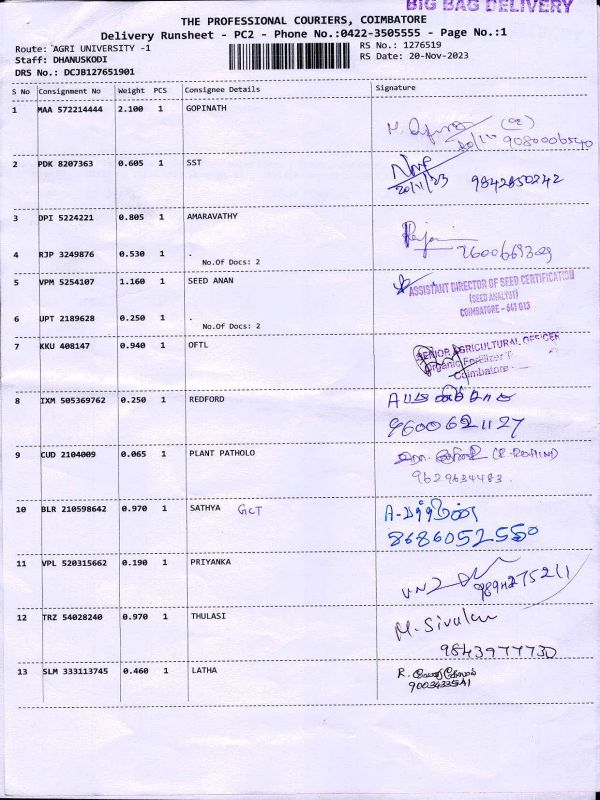 BIG BAG DELIVERY
THE PROFESSIONAL COURIERS, COIMBATORE
Delivery Runsheet - PC2 - Phone No.:0422-3505555 - Page No.:1
Route: AGRI UNIVERSITY -1 RS No.: 1276519
Staff: DHANUSKODI RS Date: 20-Nov-2023
DRS No.: DCJB127651901
S No Consignment No Weight PCS Consignee Details Signature
1 MAA 572214444 2.100 1 GOPINATH
9080006540
2 PDK 8207363 0.605 1 SST
20/11/23 9842850242
3 DPI 5224221 0.805 1 AMARAVATHY
4 RJP 3249876 0.530 1 .
No.Of Docs: 2
5 VPM 5254107 1.160 1 SEED ANAN
ASSISTANT DIRECTOR OF SEED CERTIFICATION
(SEED ANALYST)
COIMBATORE - 641 013
6 UPT 2189628 0.250 1 .
No.Of Docs: 2
7 KKU 408147 0.940 1 OFTL
SENIOR AGRICULTURAL OFFICER
Organic Fertilizer
Coimbatore
8 IXM 505369762 0.250 1 REDFORD
9600621127
9 CUD 2104009 0.065 1 PLANT PATHOLO (R-ROHINI)
9629634483
10 BLR 210598642 0.970 1 SATHYA GCT
8686052550
11 VPL 520315662 0.190 1 PRIYANKA
12 TRZ 54028240 0.970 1 THULASI
M. Sivakumar
9843977730
13 SLM 333113745 0.460 1 LATHA